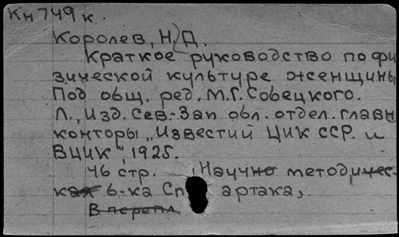 Кн 749 к.
Королев, Н. Д.
Краткое руководство по фи
зической культуре женщины
Под общ. ред. М. Г. Совецкого.
Л., Изд. Сев.-Зап обл. отдел. главн
конторы „Известий ЦИК ССР. и
ВЦИК", 1925.
46 стр. (Научно методичес-
кая б-ка Спартака,
В перепл.